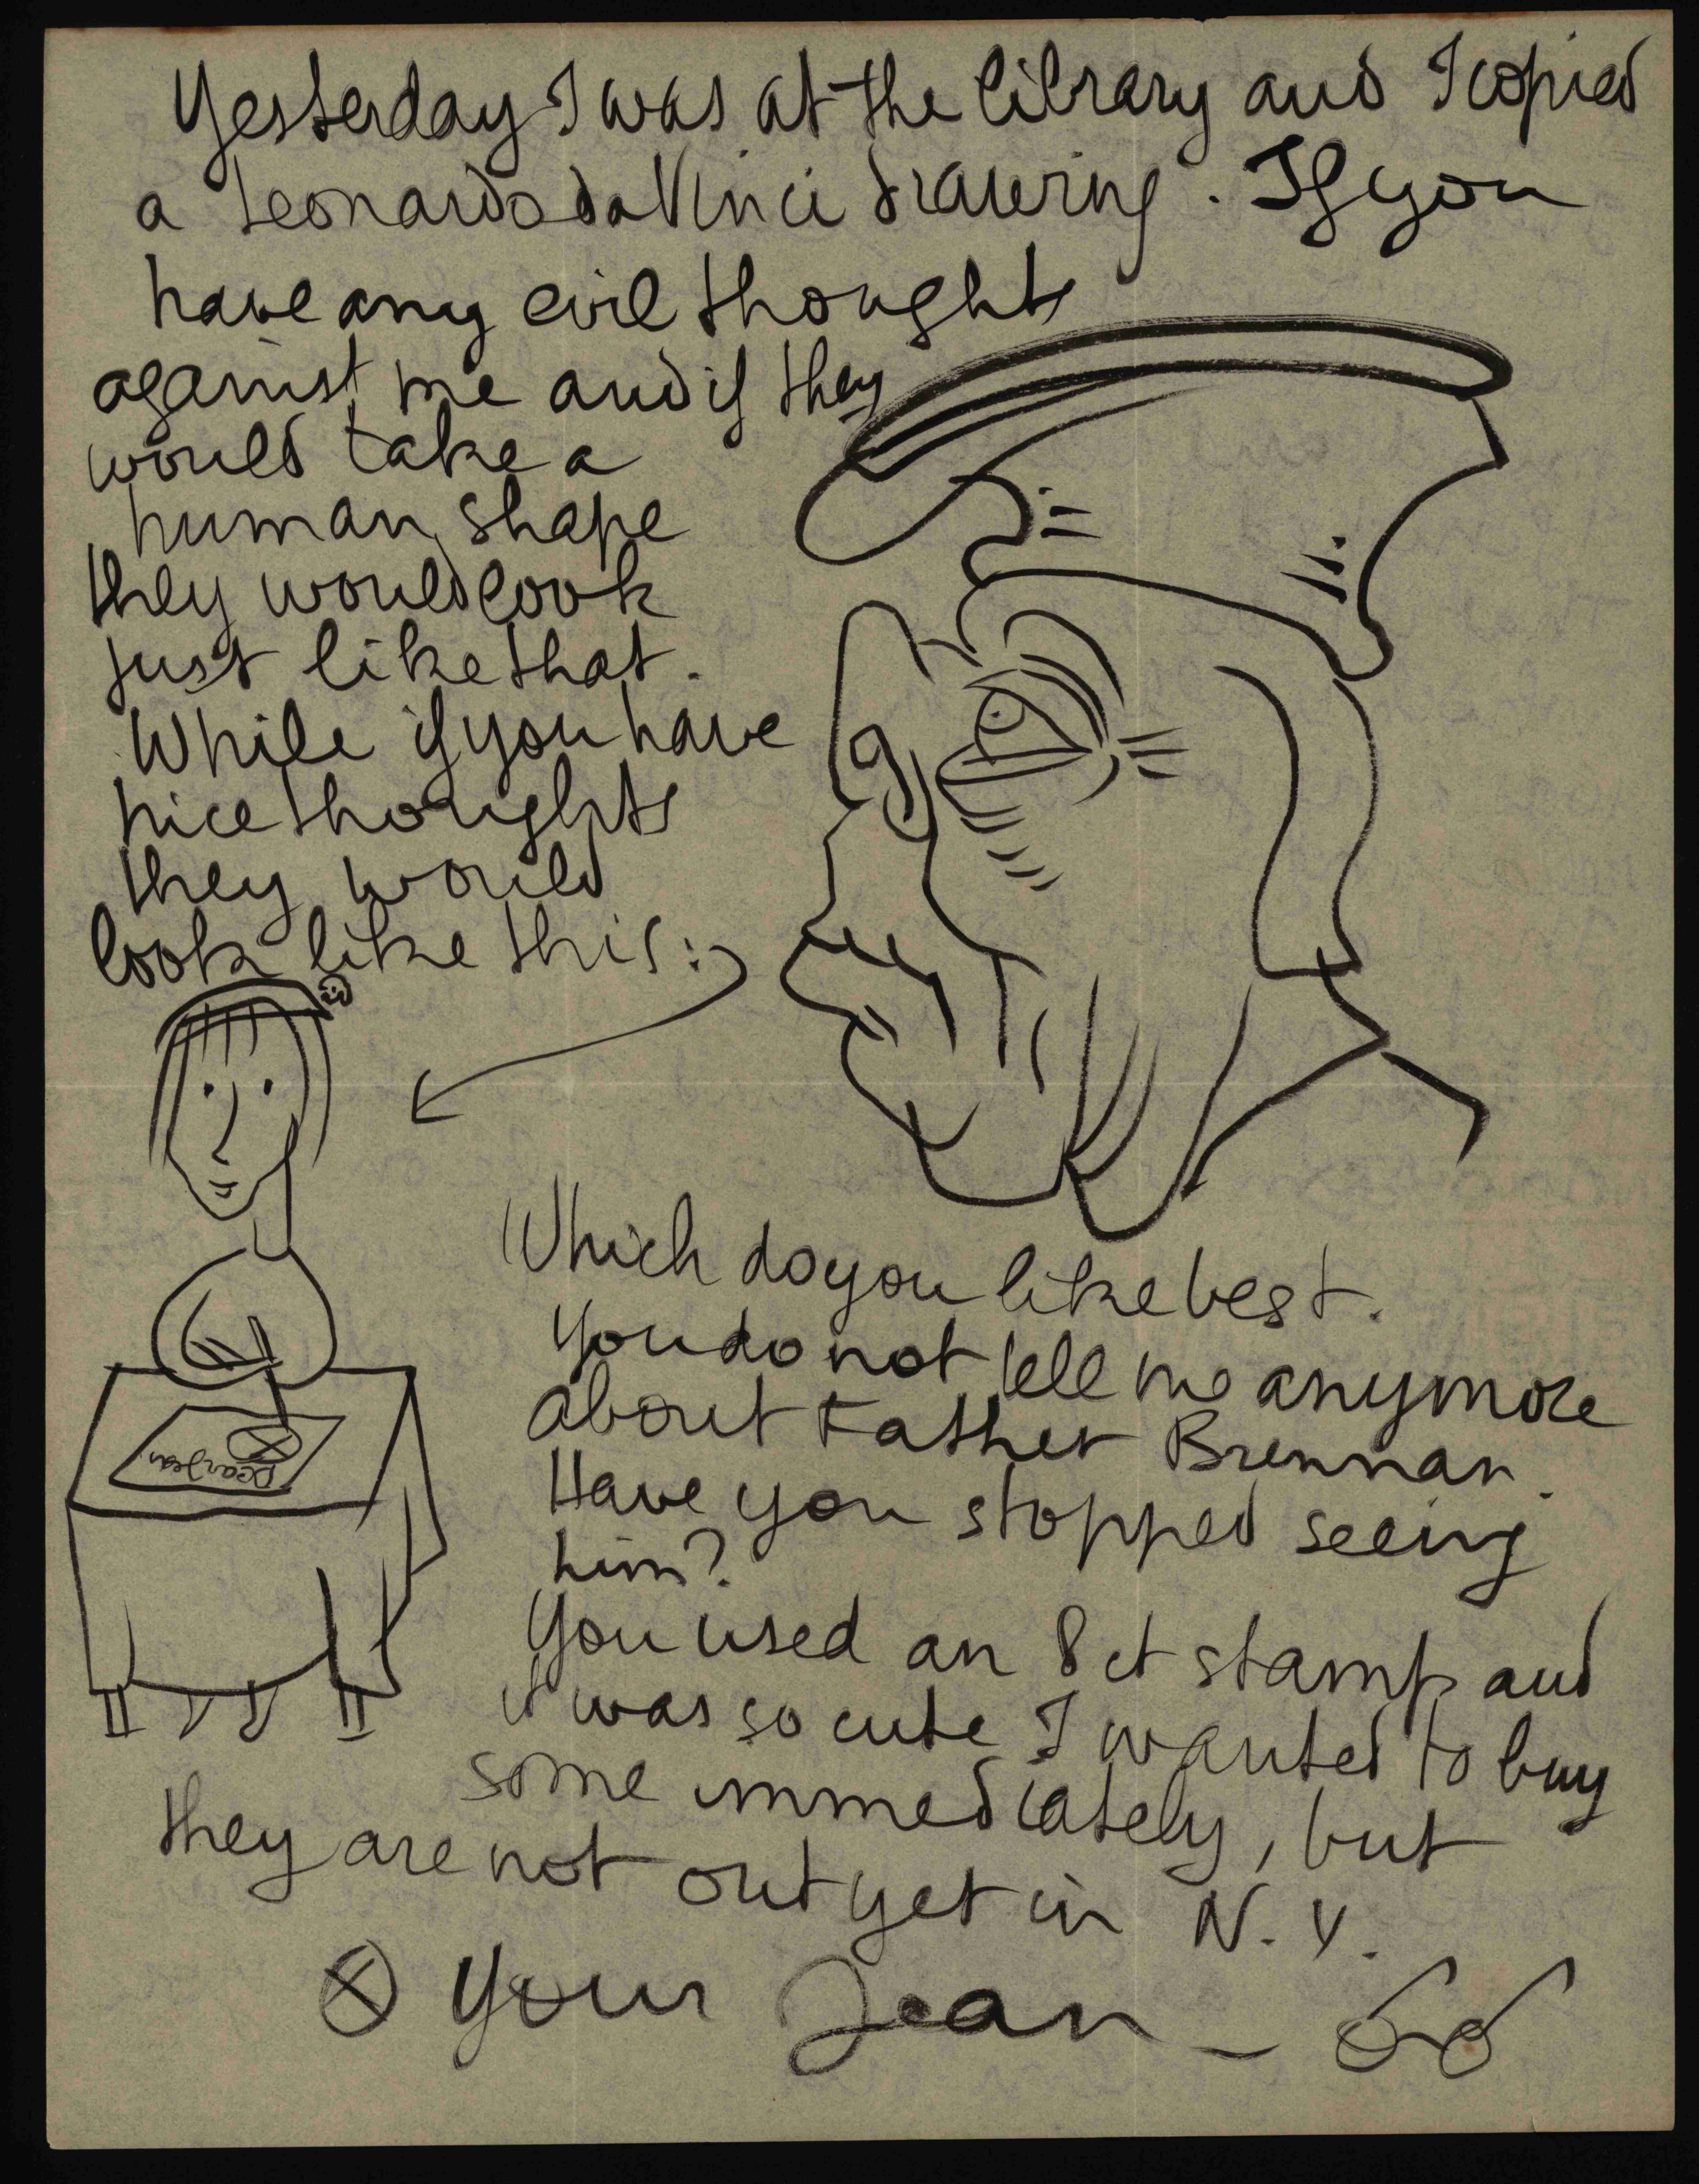 Yesterday I was at the library and I copied
a Leonardo da Vinci drawing. If you
have any evil thoughts
against me and if they
would take a
human shape
they would look
just like that.
While if you have
nice thoughts
they would
look like this:
Dear Jean
Which do you like best.
You do not tell me anymore
about Father Brennan.
Have you stopped seeing
him?
You used an 8 ct stamp and
it was so cute I wanted to buy
some immediately, but
they are not out yet in N.Y.
Your Jean –